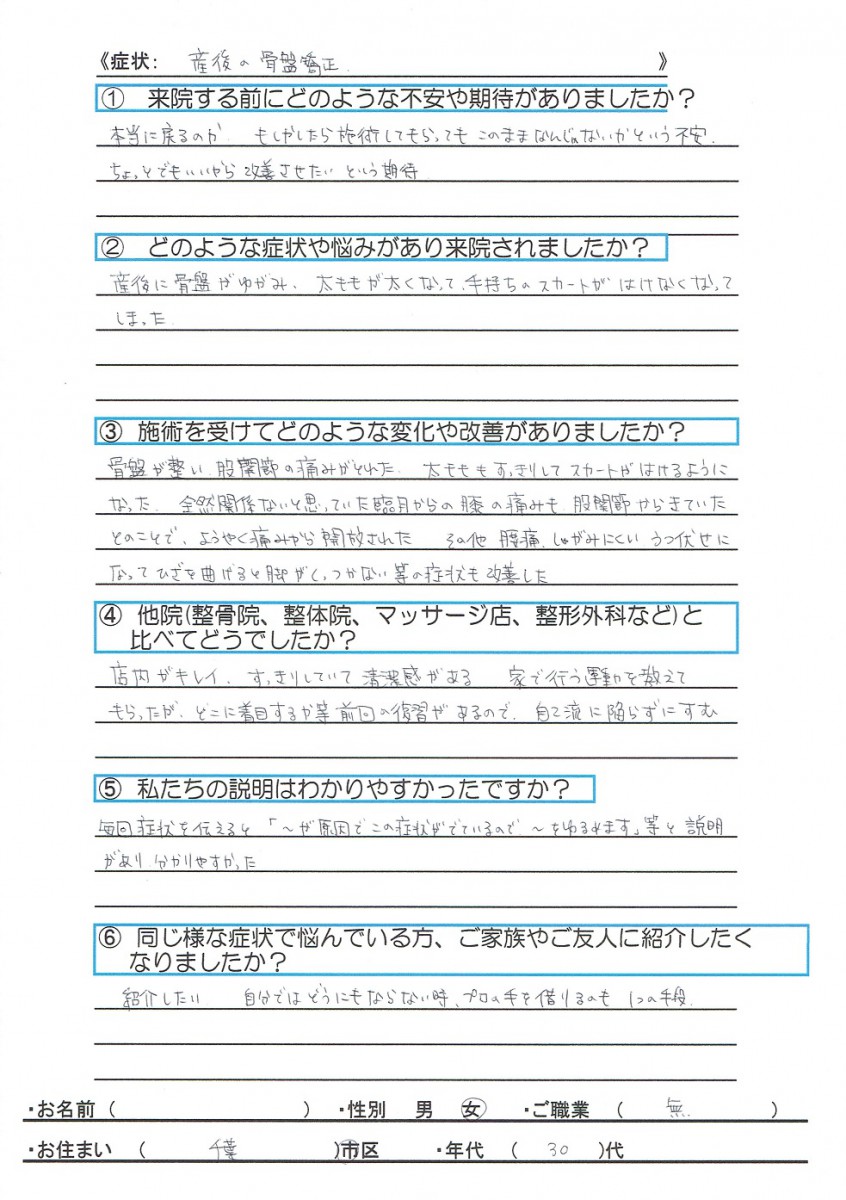 《症状： 産後の骨盤矯正 》
① 来院する前にどのような不安や期待がありましたか？
本当に戻るのか、もしかしたら施術してもらってもこのままなんじゃないかという不安、
ちょっとでもいいから改善させたいという期待
② どのような症状や悩みがあり来院されましたか？
産後に骨盤がゆがみ、太ももが太くなって、手持ちのスカートがはけなくなって
しまった。
③ 施術を受けてどのような変化や改善がありましたか？
骨盤が整い、股関節の痛みがとれた。太ももも すっきりして スカートがはけるように
なった。全然関係ないと思っていた臨月からの膝の痛みも、股関節からきていた
とのことで、ようやく痛みから開放された その他 腰痛、しゃがみにくい うつ伏せに
なってひざを曲げると脚がくっつかない等の症状も改善した
④ 他院(整骨院、整体院、マッサージ店、整形外科など)と
比べてどうでしたか？
店内がキレイ、すっきりしていて清潔感がある 家で行う運動を教えて
もらったが、どこに着目するか等 前回の復習があるので、自己流に陥らずにすむ
⑤ 私たちの説明はわかりやすかったですか？
毎回症状を伝えると「～が原因でこの症状がでているので、～をゆるめます」等と説明
があり、分かりやすかった
⑥ 同じ様な症状で悩んでいる方、ご家族やご友人に紹介したく
なりましたか？
紹介したい 自分ではどうにもならない時、プロの手を借りるのも 1つの手段。
・お名前（ ） ・性別 男 女 ・ご職業 （ 無 ）
・お住まい （ 千葉 ）市区 ・年代 （ 30 ）代